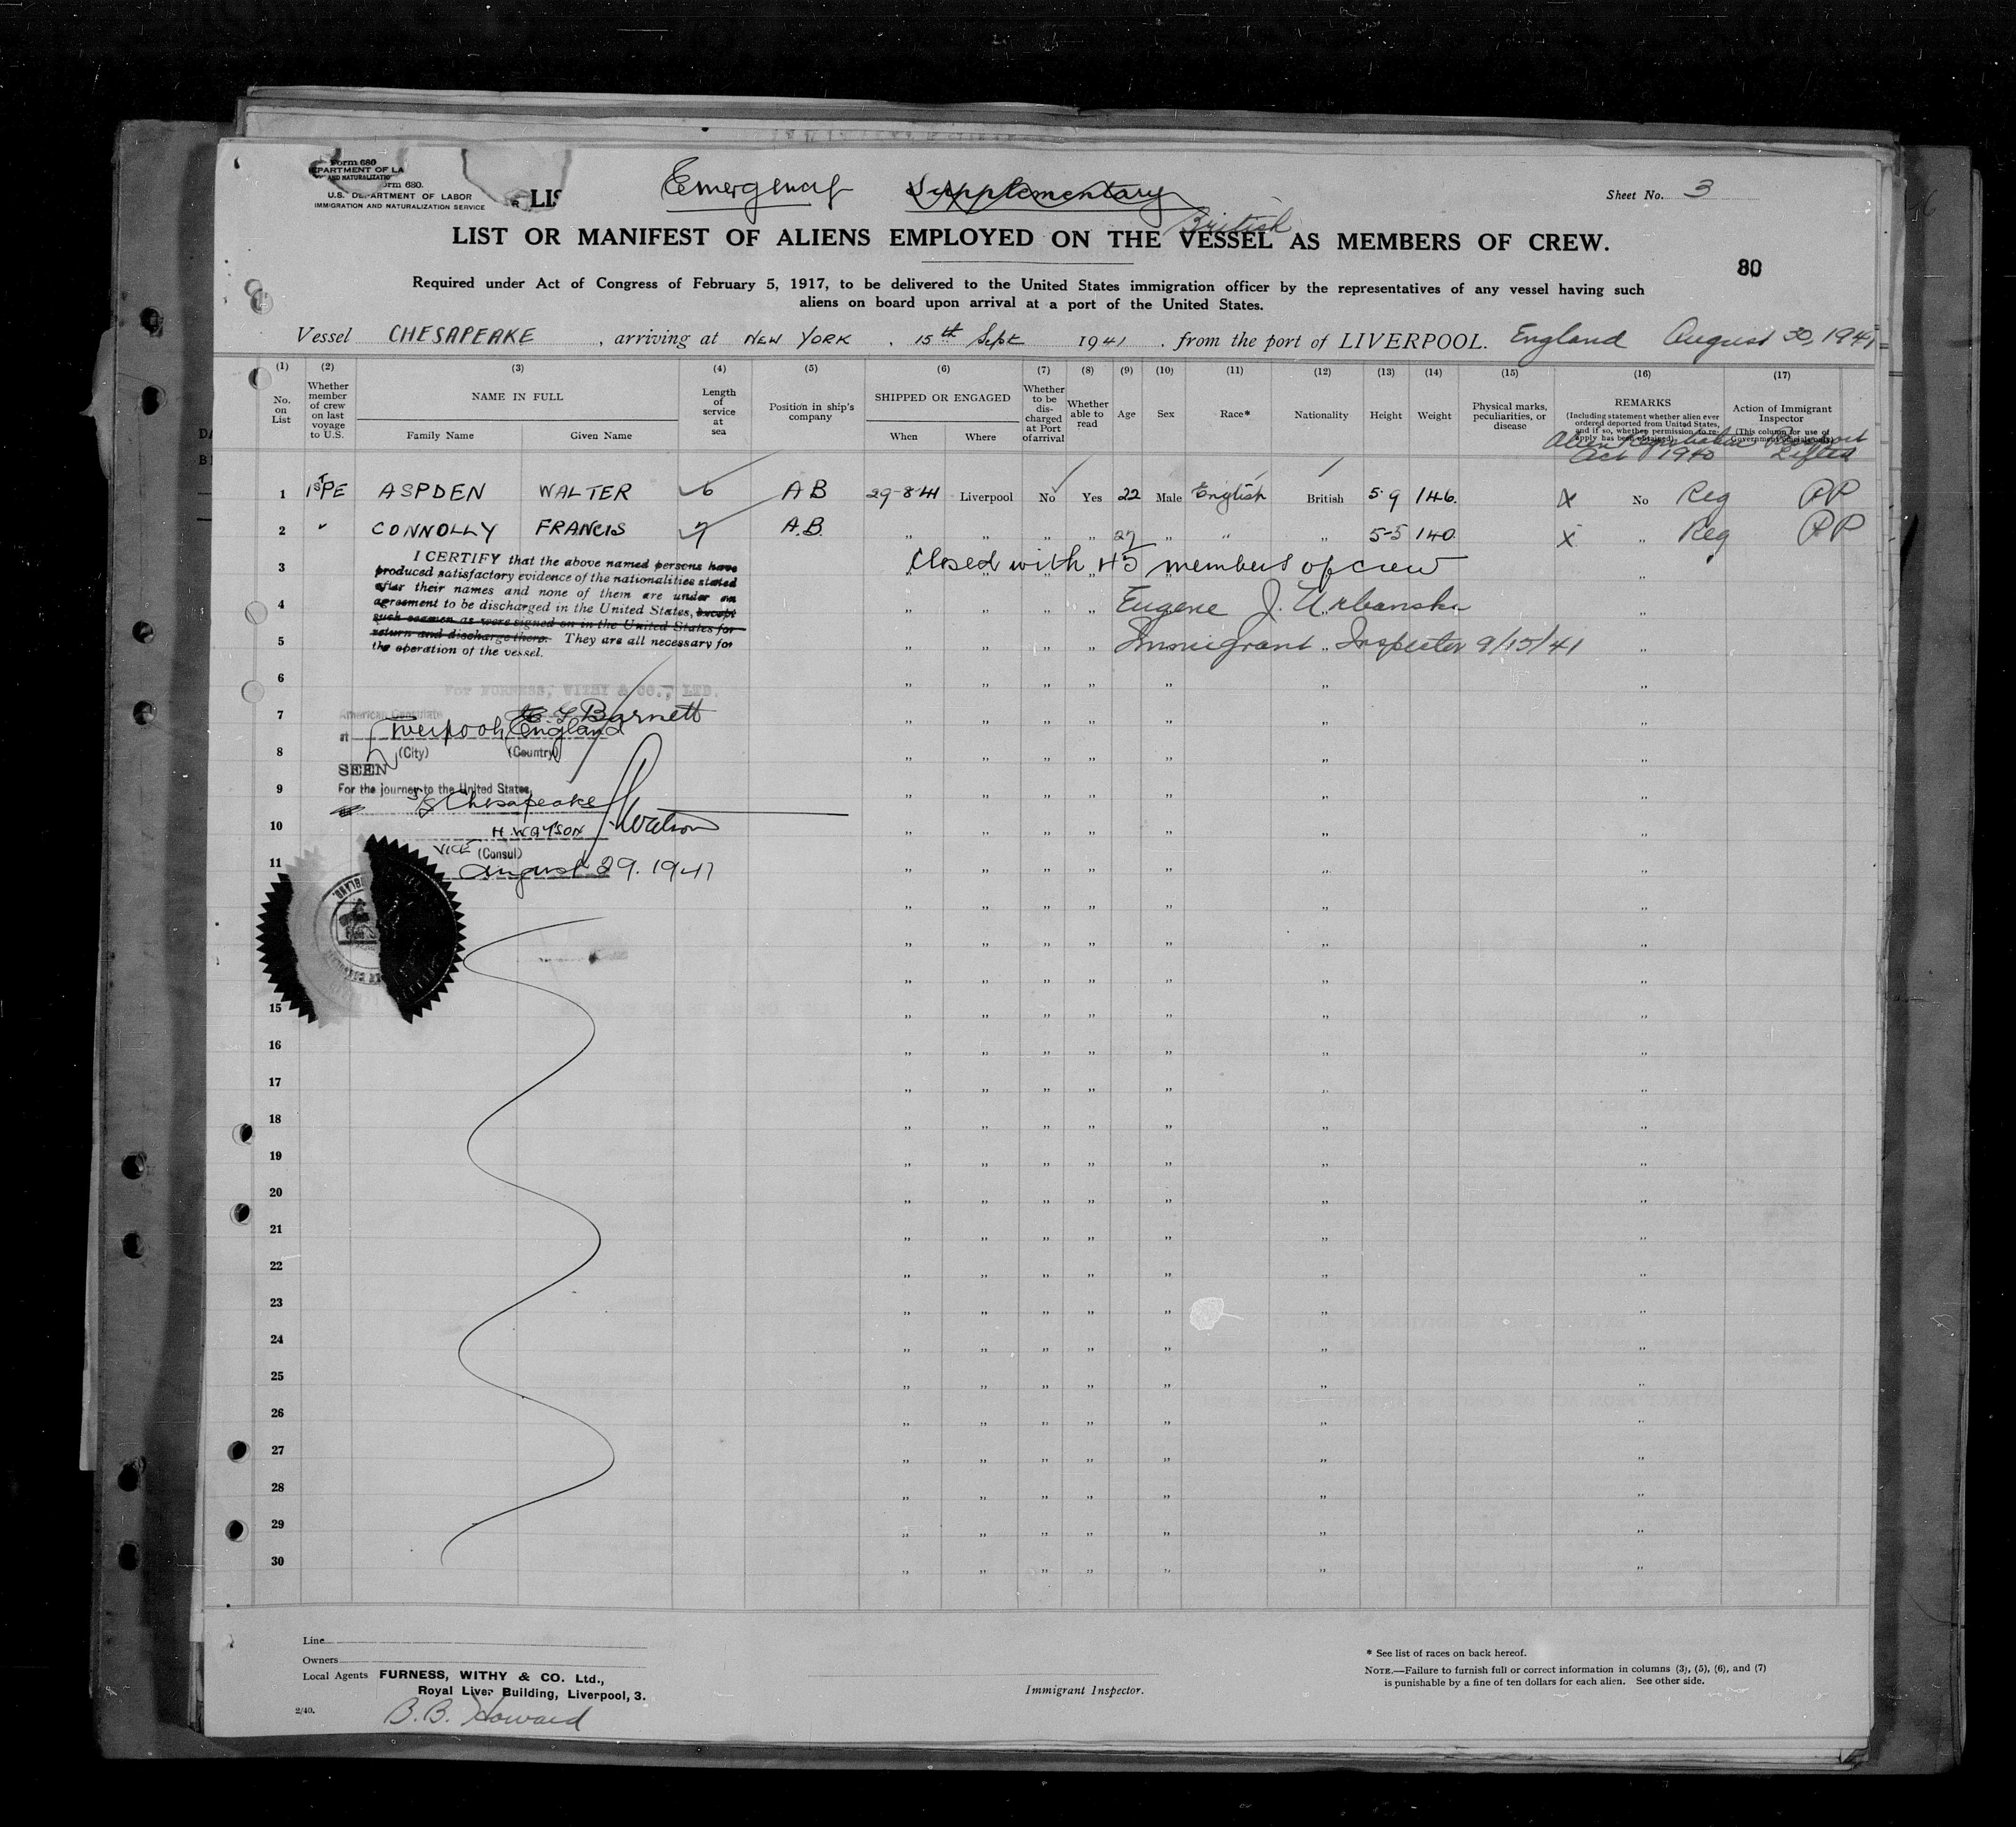 Form 680
EPARTMENT OF LA
AND NATURALIZATIO
orm 680.
U.S. DEPARTMENT OF LABOR
IMMIGRATION AND NATURALIZATION SERVICE
LIS
Emergency Supplementary
British
Sheet No. 3
LIST OR MANIFEST OF ALIENS EMPLOYED ON THE VESSEL AS MEMBERS OF CREW.
80
Required under Act of Congress of February 5, 1917, to be delivered to the United States immigration officer by the representatives of any vessel having such
aliens on board upon arrival at a port of the United States.
Vessel CHESAPEAKE, arriving at NEW YORK, 15th Sept 1941. from the port of LIVERPOOL. England August 30, 1941
(1) (2) (3) (4) (5) (6) (7) (8) (9) (10) (11) (12) (13) (14) (15) (16) (17)
No. on List
Whether member of crew on last voyage to U.S.
NAME IN FULL
Family Name Given Name
Length of service at sea
Position in ship's company
SHIPPED OR ENGAGED
When Where
Whether to be discharged at Port of arrival
Whether able to read
Age
Sex
Race*
Nationality
Height
Weight
Physical marks, peculiarities, or disease
REMARKS
(Including statement whether alien ever ordered deported from United States, and if so, whether permission to re-apply has been obtained)
Action of Immigrant Inspector
(This column for use of Government officials only)
Alien Registration Act 1940
Passport Lifted
1 1st PE ASPDEN WALTER 6 AB 29-8-41 Liverpool No Yes 22 Male English British 5·9 146. X No Reg PP
2 " CONNOLLY FRANCIS 7 A.B. " " " " 27 " " " 5-5 140 X " Reg PP
3 Closed with 45 members of crew
4 Eugene J. Urbanski
5 Immigrant Inspector 9/15/41
I CERTIFY that the above named persons have
produced satisfactory evidence of the nationalities stated
after their names and none of them are under an
agreement to be discharged in the United States, except
such seamen as were signed on in the United States for
return and discharge there. They are all necessary for
the operation of the vessel.
6
FOR FURNESS, WITHY & CO., LTD.
7
American Consulate
Barnett
at Liverpool, England
8 (City) (Country)
SEEN
9 For the journey to the United States,
S/S Chesapeake
10 H. WATSON HWatson
VICE (Consul)
11 August 29. 1941
15
16
17
18
19
20
21
22
23
24
25
26
27
28
29
30
Line
Owners
Local Agents FURNESS, WITHY & CO. Ltd.,
Royal Liver Building, Liverpool, 3.
2/40.
B.B. Howard
Immigrant Inspector.
* See list of races on back hereof.
NOTE.—Failure to furnish full or correct information in columns (3), (5), (6), and (7)
is punishable by a fine of ten dollars for each alien. See other side.